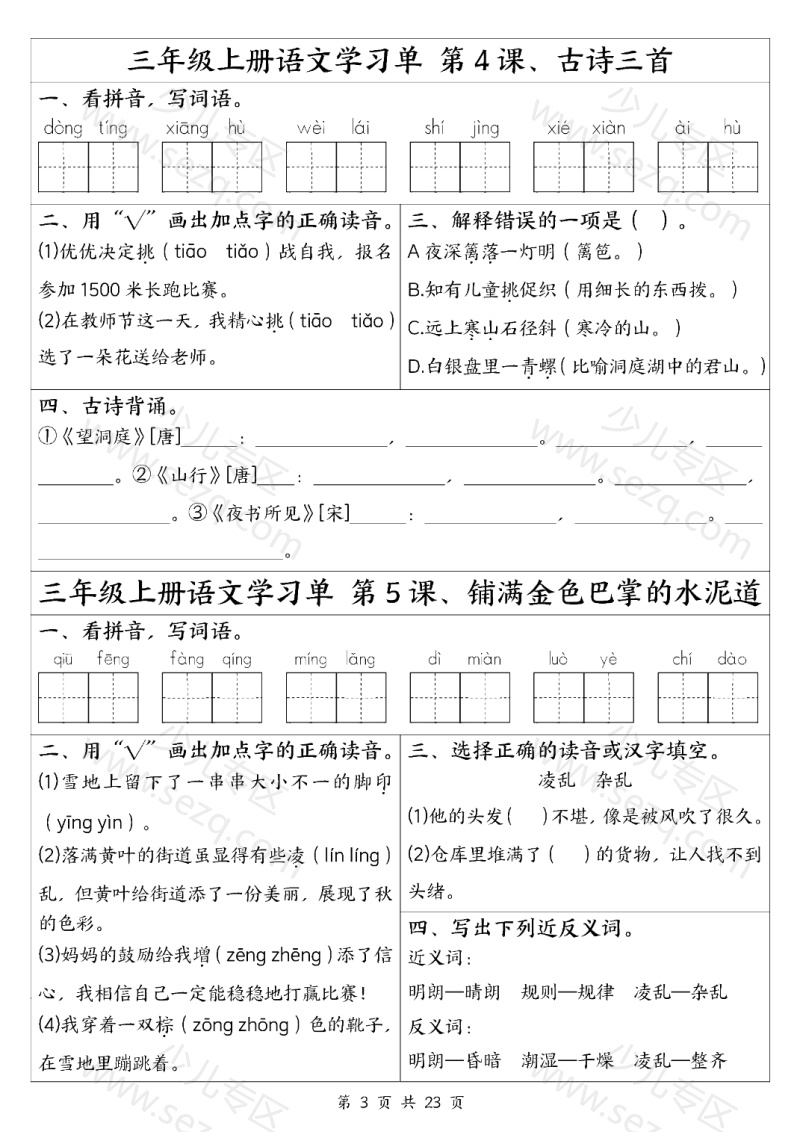 三年级上册语文学习单 第4课、古诗三首
一、看拼音，写词语。
dòng tíng xiāng hù wèi lái shí jìng xié xiàn ài hù
二、用“√”画出加点字的正确读音。
(1)优优决定挑（tiāo tiǎo）战自我，报名
参加1500米长跑比赛。
(2)在教师节这一天，我精心挑（tiāo tiǎo）
选了一朵花送给老师。
三、解释错误的一项是（ ）。
A 夜深篱落一灯明（篱笆。）
B.知有儿童挑促织（用细长的东西拨。）
C.远上寒山石径斜（寒冷的山。）
D.白银盘里一青螺（比喻洞庭湖中的君山。）
四、古诗背诵。
①《望洞庭》[唐]______：______，______。______，______
______。②《山行》[唐]____：______，______。______，
______。③《夜书所见》[宋]______：______，______。____
______。
三年级上册语文学习单 第5课、铺满金色巴掌的水泥道
一、看拼音，写词语。
qiū fēng fàng qíng míng lǎng dì miàn luò yè chí dào
二、用“√”画出加点字的正确读音。
(1)雪地上留下了一串串大小不一的脚印
（yīng yìn）。
(2)落满黄叶的街道虽显得有些凌（lín líng）
乱，但黄叶给街道添了一份美丽，展现了秋
的色彩。
(3)妈妈的鼓励给我增（zēng zhēng）添了信
心，我相信自己一定能稳稳地打赢比赛！
(4)我穿着一双棕（zōng zhōng）色的靴子，
在雪地里蹦跳着。
三、选择正确的读音或汉字填空。
凌乱 杂乱
(1)他的头发（ ）不堪，像是被风吹了很久。
(2)仓库里堆满了（ ）的货物，让人找不到
头绪。
四、写出下列近反义词。
近义词：
明朗—晴朗 规则—规律 凌乱—杂乱
反义词：
明朗—昏暗 潮湿—干燥 凌乱—整齐
第 3 页 共 23 页
少儿专区
www.sezq.com